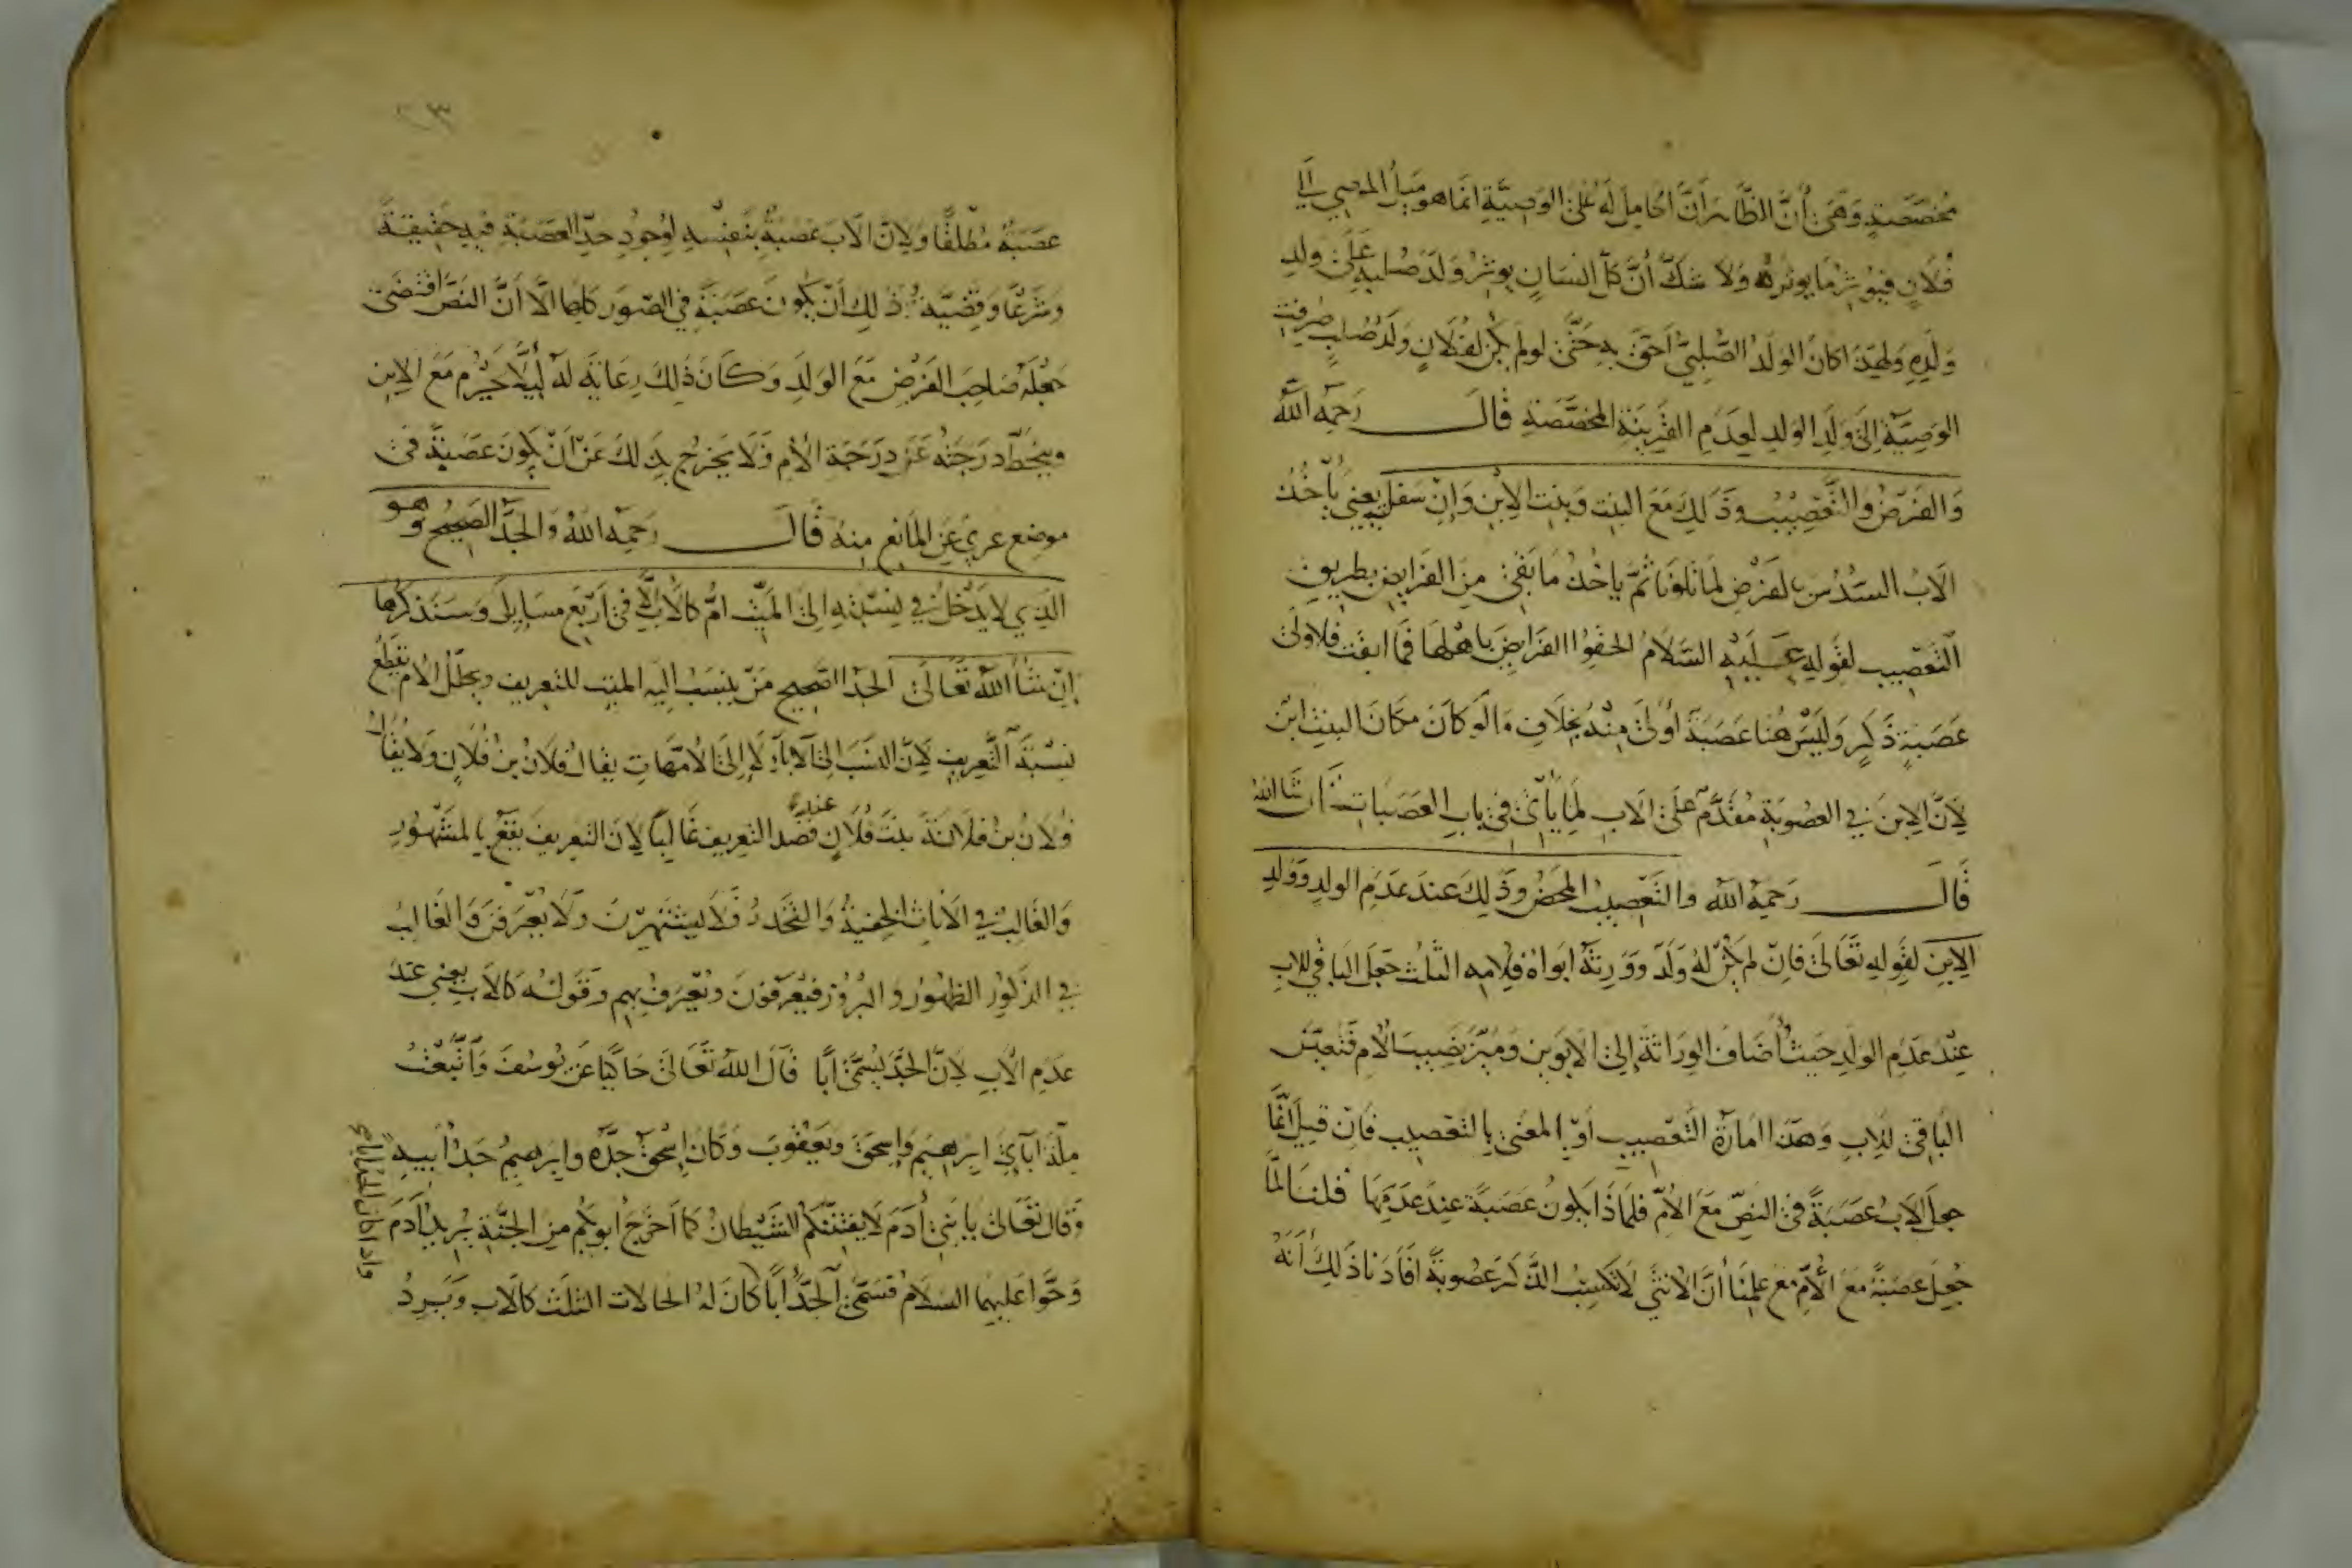 مخصصة وهي أن الظاهر أن الحامل له على الوصية انما هو ميل الموصي الي
فلان فيوثر ما يوثره ولا شك أن كل انسان يوثر ولد صلبه على ولد
ولده ولهذا كان الولد الصلبي احق به حتى لو لم يكن لفلان ولد صلب صرفت
الوصية الى ولد الولد لعدم القرينة المخصصة قال رحمه الله
والفرض والتعصيب وذلك مع البنت وبنت الابن وان سفل يعني يأخذ
الاب السدس بالفرض لما تلونا ثم ياخذ ما بقي من الفرايض بطريق
التعصيب لقوله عليه السلام الحقوا الفرائض باهلها فما ابقت فلاولى
عصبة ذكر وليس هنا عصبة أولى منه بخلاف ما لو كان مكان البنت ابن
لأن الابن في العصوبة مقدم على الاب لما يأتي في باب العصبات ان شا الله
قال رحمه الله والتعصيب المحض وذلك عند عدم الولد وولد
الابن لقوله تعالى فان لم يكن له ولد وورثه ابواه فلامه الثلث جعل الباقي للاب
عند عدم الولد حيث أضاف الوراثة إلى الابوين وميز نصيب الام فتعين
الباقي للاب وهذا امارة التعصيب أو المعنى بالتعصيب فان قيل انما
جعل الاب عصبة في النص مع الأم فلماذا يكون عصبة عند عدمها قلنا لما
جعل عصبة مع الأم مع علمنا أن الانثى لا تكسب الذكر عصوبة افادنا ذلك أنه
عصبة مطلقا ولان الاب عصبة بنفسه لوجود حد العصبة فيه حقيقة
وشرعا وقضية ذلك أن يكون عصبة في الصور كلها الا أن النص اقتضى
جعله صاحب الفرض مع الولد وكان ذلك رعاية له ليلا يحرم مع الابن
وينحط درجته عن درجة الأم فلا يخرج بذلك عن ان يكون عصبة في
موضع عري عن المانع منه قال رحمه الله والجد الصحيح وهو
الذي لا يدخل في نسبته الى الميت ام كالأب إلا في أربع مسايل وسنذكرها
إن شا الله تعالى الجد الصحيح من ينسب اليه الميت للتعريف وتخلل الأم تقطع
نسبة التعريف لأن النسب الى الآباء لا إلى الأمهات يقال فلان بن فلان ولا يقال
فلان بن فلانة بنت فلان عند قصد التعريف غالبا لان التعريف يقع بالمشهور
والغالب في الاناث الخفية والتخدر فلا يشتهرن ولا يعرفن والغالب
في الذكور الظهور والبروز فيعرفون ويعرف بهم وقوله كالأب يعني عند
عدم الأب لأن الجد يسمى أبا قال الله تعالى حاكيا عن يوسف واتبعت
ملة آبآي ابرهيم وإسحق ويعقوب وكان إسحق جده وابرهيم جد أبيه
وقال تعالى يا بني آدم لا يفتننكم الشيطان كما أخرج أبويكم من الجنة يريد آدم
وحوا عليهما السلام فسمى الجد أبا كان له الحالات الثلث كالأب ويرد